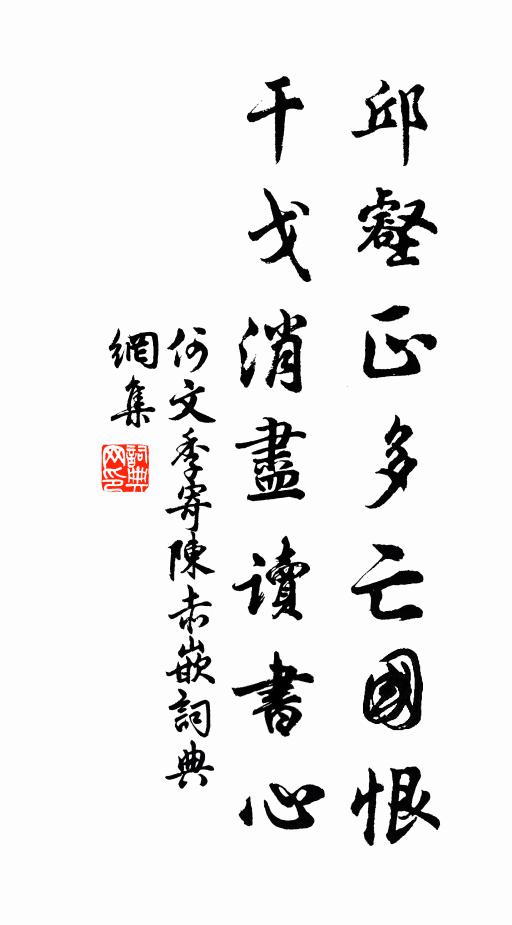 邱壑正多亡國恨
干戈消盡讀書心
何文季寄陳赤嵌詞典
網集
詞典
网印